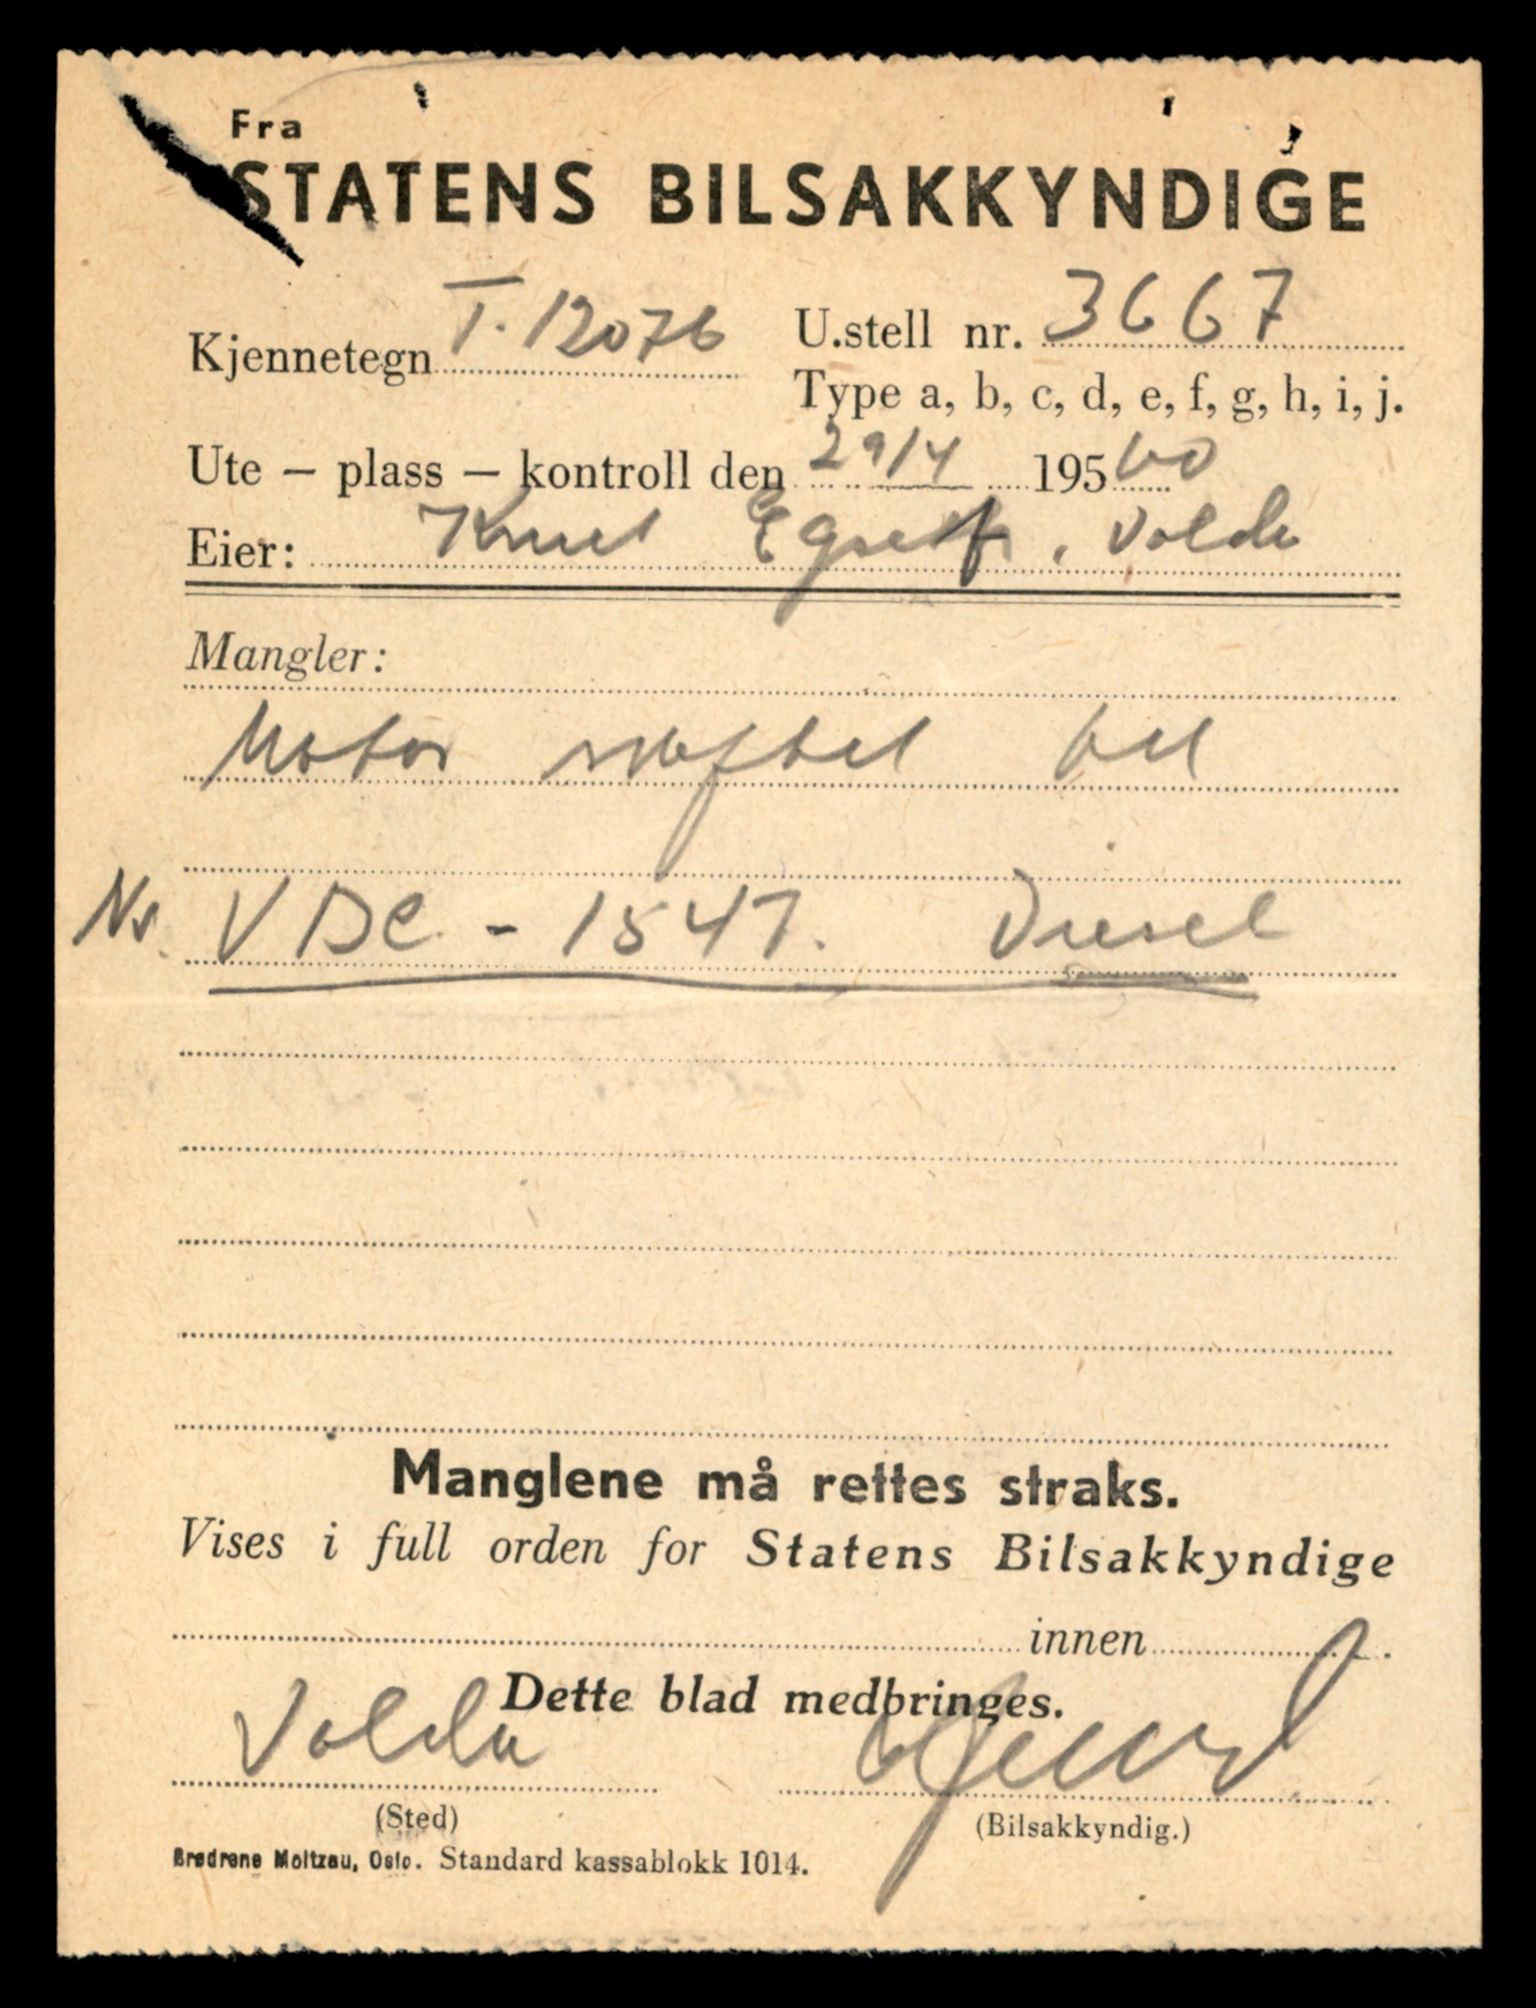 Fra
STATENS BILSAKKYNDIGE
Kjennetegn T-12076 U.stell nr. 3667
Type a, b, c, d, e, f, g, h, i, j.
Ute – plass – kontroll den 29/4 195 60
Eier: Knut Egset, Volda
Mangler:
Motor skiftet til
Nr. VDC - 1547. Diesel
Manglene må rettes straks.
Vises i full orden for Statens Bilsakkyndige
innen .
Dette blad medbringes.
Volda
(Sted) (Bilsakkyndig.)
Brødrene Moltzau, Oslo. Standard kassablokk 1014.